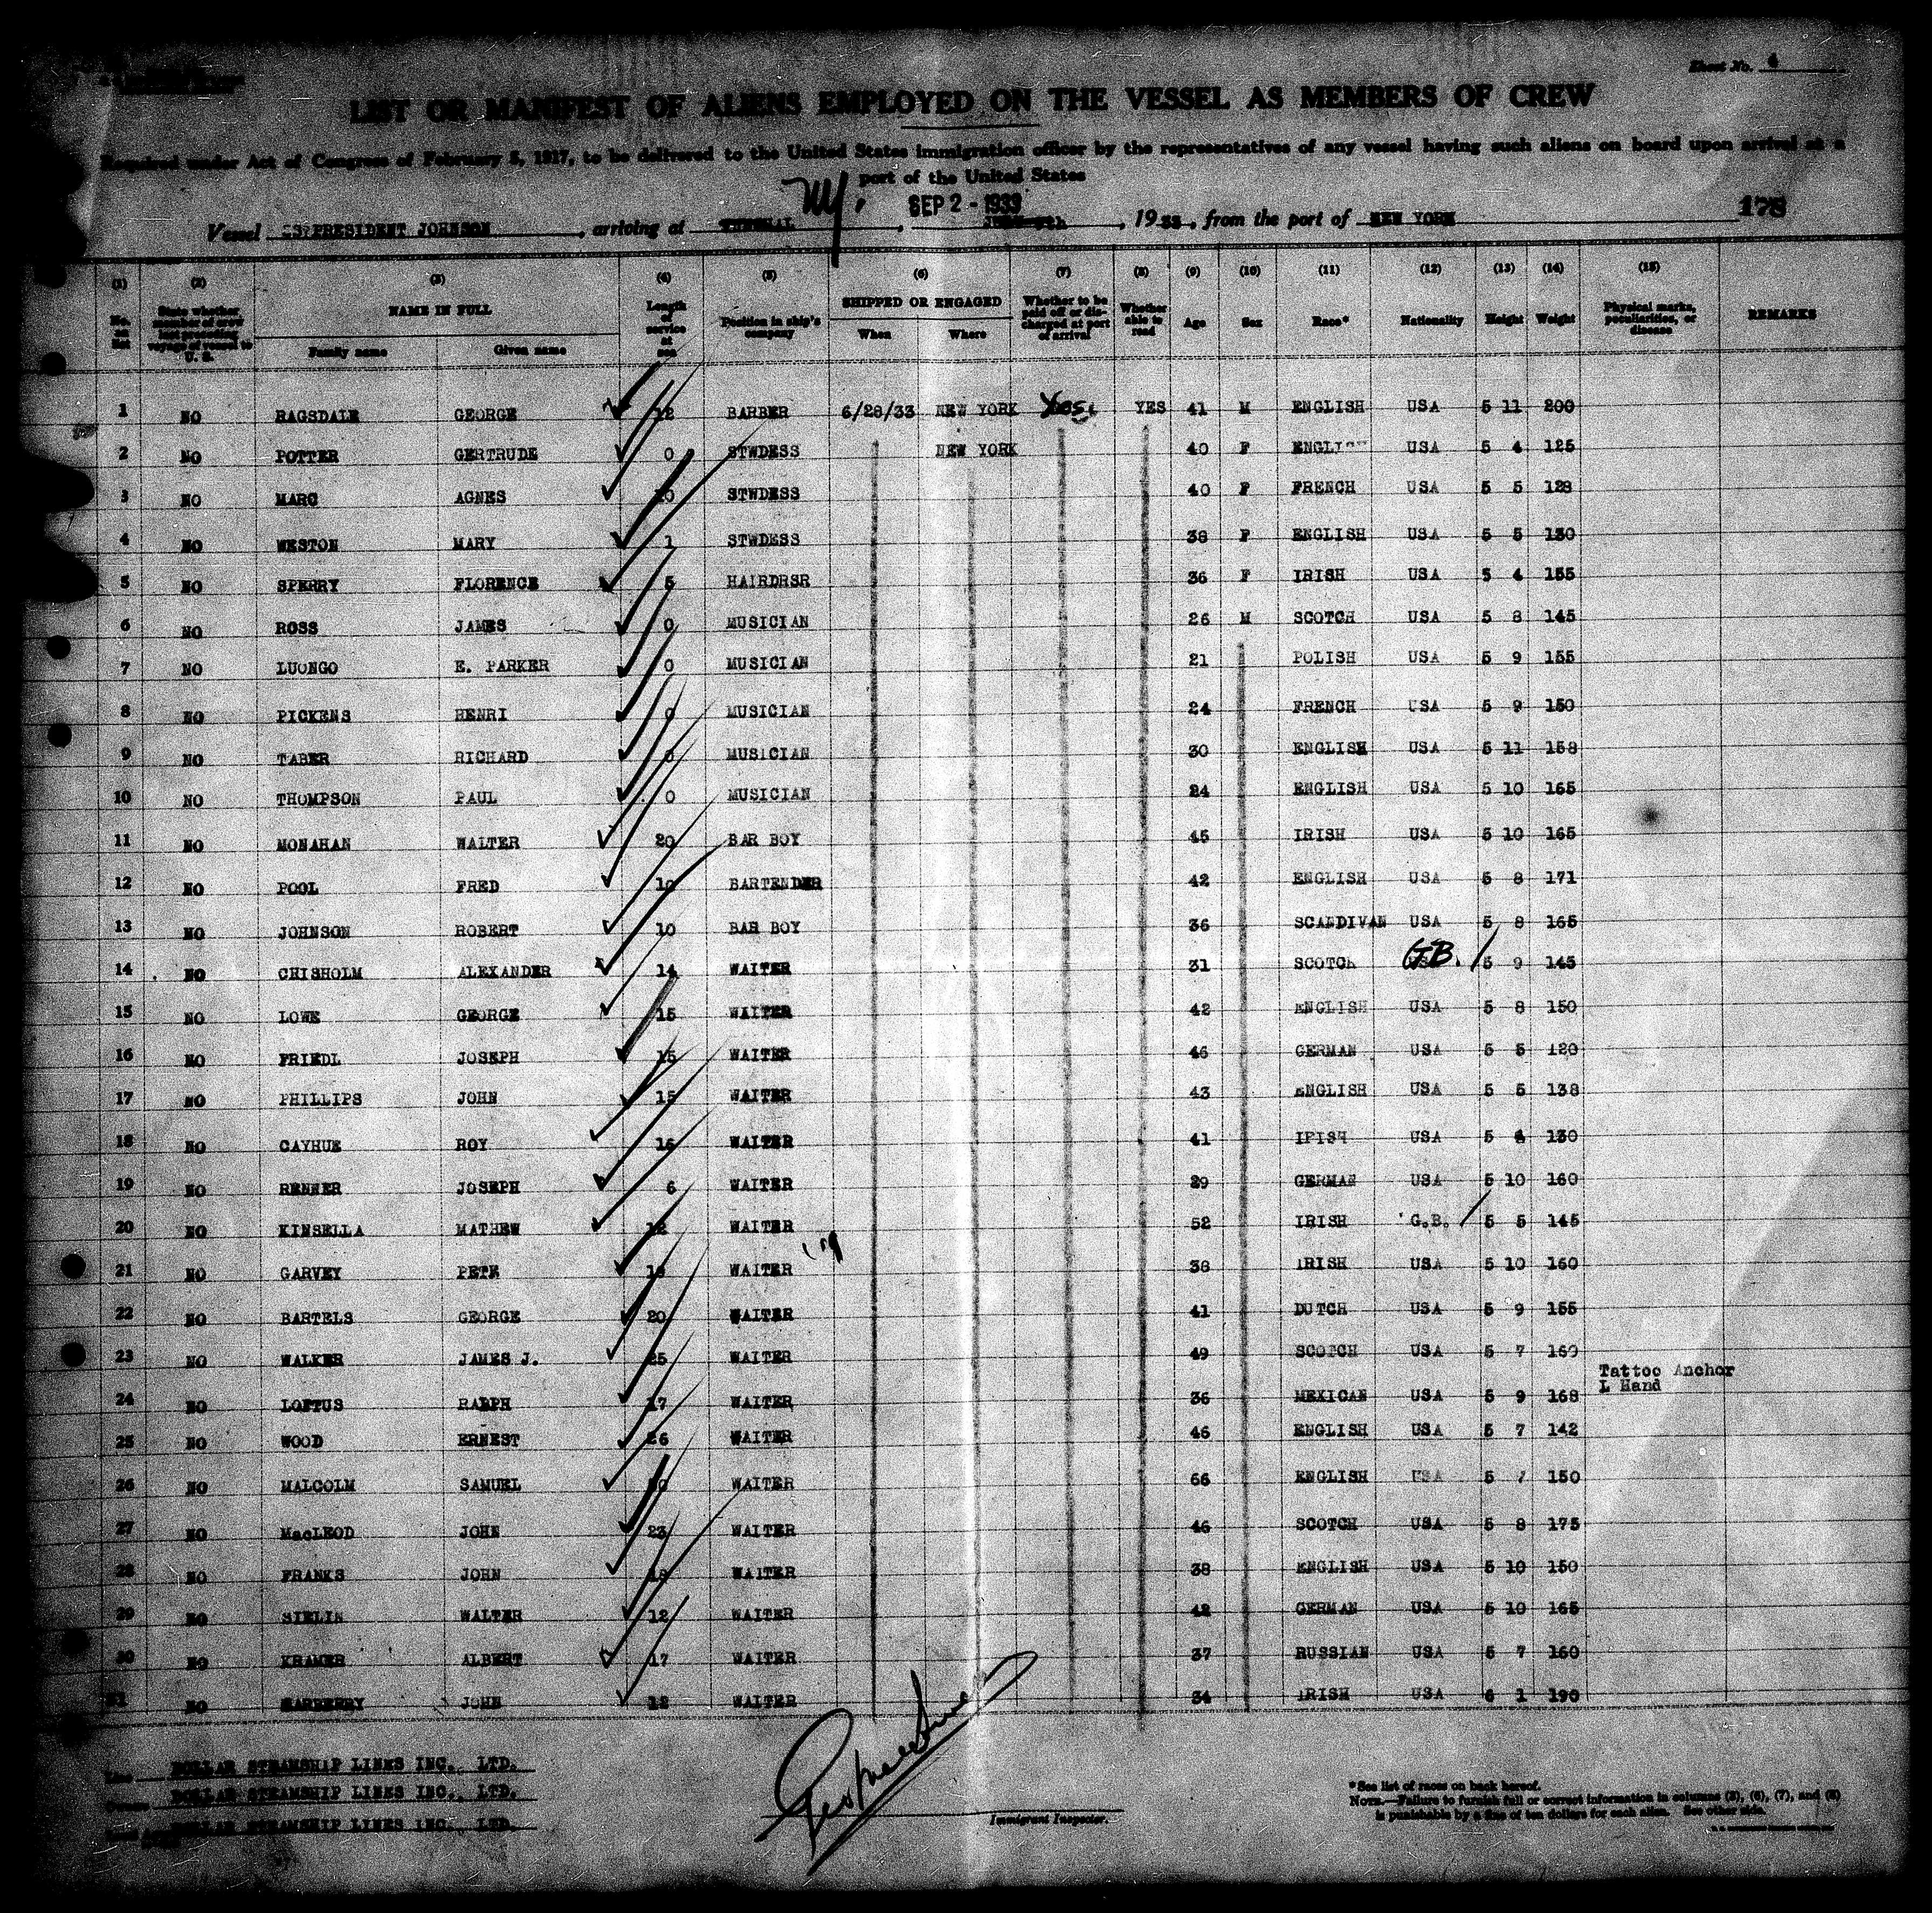 Sheet No. 4
LIST OR MANIFEST OF ALIENS EMPLOYED ON THE VESSEL AS MEMBERS OF CREW
Required under Act of Congress of February 5, 1917, to be delivered to the United States immigration officer by the representatives of any vessel having such aliens on board upon arrival at a
port of the United States
NY. SEP 2 - 1933 178
Vessel SS PRESIDENT JOHNSON, arriving at , , 1933, from the port of NEW YORK
(1) (2) (3) (4) (5) (6) (7) (8) (9) (10) (11) (12) (13) (14) (15)
No. on list State whether member of crew last voyage of vessel to U. S. NAME IN FULL Family name Given name Length of service at sea Position in ship's company SHIPPED OR ENGAGED When Where Whether to be paid off or discharged at port of arrival Whether able to read Age Sex Race* Nationality Height Weight Physical marks, peculiarities, or disease REMARKS
1 NO RAGSDALE GEORGE 12 BARBER 6/28/33 NEW YORK Yes YES 41 M ENGLISH USA 5 11 200
2 NO POTTER GERTRUDE 0 STWDESS NEW YORK 40 F ENGLISH USA 5 4 125
3 NO MARC AGNES 10 STWDESS 40 F FRENCH USA 5 5 128
4 NO WESTON MARY 1 STWDESS 38 F ENGLISH USA 5 5 130
5 NO SPERRY FLORENCE 5 HAIRDRSR 36 F IRISH USA 5 4 155
6 NO ROSS JAMES 0 MUSICIAN 26 M SCOTCH USA 5 8 145
7 NO LUONGO E. PARKER 0 MUSICIAN 21 POLISH USA 5 9 155
8 NO PICKENS HENRI 0 MUSICIAN 24 FRENCH USA 5 9 150
9 NO TABER RICHARD 0 MUSICIAN 30 ENGLISH USA 5 11 158
10 NO THOMPSON PAUL 0 MUSICIAN 24 ENGLISH USA 5 10 165
11 NO MONAHAN WALTER 20 BAR BOY 45 IRISH USA 5 10 165
12 NO POOL FRED 10 BARTENDER 42 ENGLISH USA 5 8 171
13 NO JOHNSON ROBERT 10 BAR BOY 36 SCANDIVAN USA 5 8 165
14 NO CHISHOLM ALEXANDER 14 WAITER 31 SCOTCH G.B. 5 9 145
15 NO LOWE GEORGE 15 WAITER 42 ENGLISH USA 5 8 150
16 NO FRIEDL JOSEPH 15 WAITER 46 GERMAN USA 5 5 120
17 NO PHILLIPS JOHN 15 WAITER 43 ENGLISH USA 5 5 138
18 NO CAYHUE ROY 16 WAITER 41 IRISH USA 5 4 130
19 NO RENNER JOSEPH 6 WAITER 29 GERMAN USA 5 10 160
20 NO KINSELLA MATHEW 12 WAITER 52 IRISH G.B. 5 5 145
21 NO GARVEY PETE WAITER 38 IRISH USA 5 10 160
22 NO BARTELS GEORGE 20 WAITER 41 DUTCH USA 5 9 155
23 NO WALKER JAMES J. 25 WAITER 49 SCOTCH USA 5 7 160
24 NO LOFTUS RALPH 17 WAITER 36 MEXICAN USA 5 9 168 Tattoo Anchor L Hand
25 NO WOOD ERNEST 26 WAITER 46 ENGLISH USA 5 7 142
26 NO MALCOLM SAMUEL WAITER 66 ENGLISH USA 5 7 150
27 NO MacLEOD JOHN 23 WAITER 46 SCOTCH USA 5 8 175
28 NO FRANKS JOHN 18 WAITER 38 ENGLISH USA 5 10 150
29 NO SIELIN WALTER 12 WAITER 42 GERMAN USA 5 10 165
30 NO KRAMER ALBERT 17 WAITER 37 RUSSIAN USA 5 7 160
31 NO JOHN 12 WAITER 34 IRISH USA 6 1 190
Line DOLLAR STEAMSHIP LINES INC., LTD.
Owners DOLLAR STEAMSHIP LINES INC., LTD.
DOLLAR STEAMSHIP LINES INC., LTD.
Immigrant Inspector.
*See list of races on back hereof.
NOTE.—Failure to furnish full or correct information in columns (2), (6), (7), and (8)
is punishable by a fine of ten dollars for each alien. See other side.